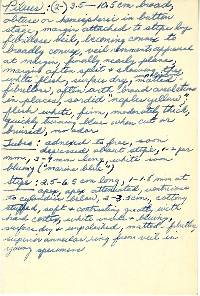 Pileus: (2-) 3.5 - 10.5 cm broad,
obtuse or hemispheric in button
stage, margin attached to stipe by
fibrillose veil, becoming convex to
broadly convex, veil remnants appearing
at margin, finally nearly plane,
margin often split & showing
white flesh, surface dry,
fibrillose, often with broad areolations
in places, sordid "naples yellow";
flesh white, firm, moderately thick,
quickly turning blue when cut or
bruised, no odor
Tubes: adnexed to free, soon
depressed about stipe, 1-2 per
mm, 3-9 mm long, white
bluing ("marine blue")
Stipe: 3.5-6.5 cm long, 1-1.8 mm at
apex, apex attenuated, ventricose
to cylindric below, 2-3.5cm, cottony
stuffed, soft & contrasting greatly with
hard cortex, white inside & bluing,
surface dry & unpolished, matted fibrillose
superior annular ring from veil in
young specimens